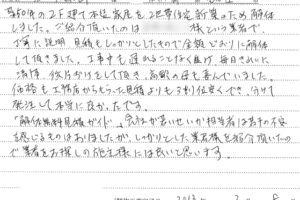 築50年の2F建て木造家屋を2世帯住宅新築のため解体
しました。ご紹介頂いたのは 様という業者で、
丁寧に説明、見積もしっかりしたもので金額どおりに解体
して頂きました。工事中も遅れることなく進み、毎日きれいに
清掃、後片付けをして頂き、高齢の母も喜んでいました。
価格も工務店からもらった見積よりも3割位安くでき、分けて
発注して本当に良かったです。
「解体無料見積ガイド」、会社が若いせいか担当者は若干の不安
感じるものはありましたが、しっかりとした業者様を紹介頂いたの
で業者をお探しの施主様には良いと思います。
2013 2 8